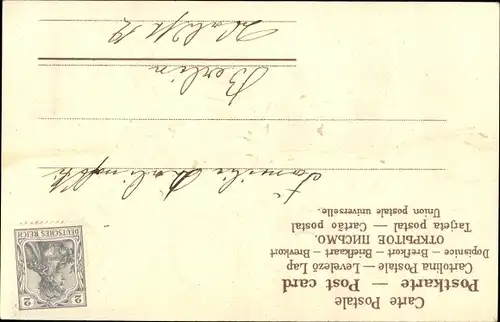 Carte Postale
Postkarte — Post card
Cartolina Postale — Levelező Lap
Dopisnice — Brefkort — Briefkaart — Brevkort
ОТКРЫТОЕ ПИСЬМО.
Tarjeta postal — Cartão postal
Union postale universelle.
2 2
DEUTSCHES REICH
Familie
Berlin